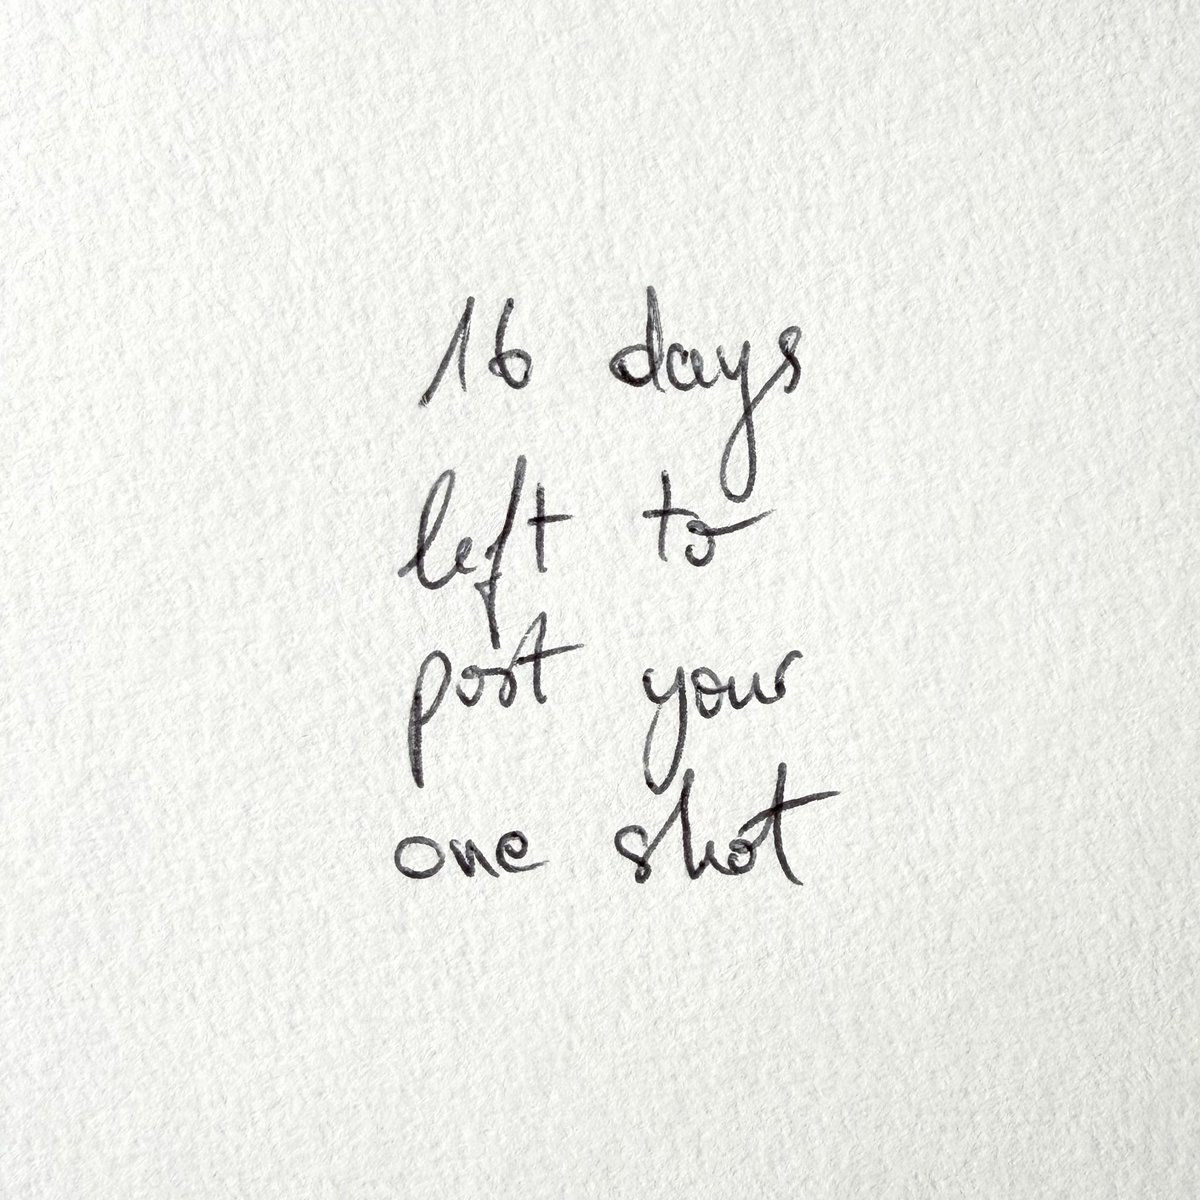 16 days
left to
post your
one shot